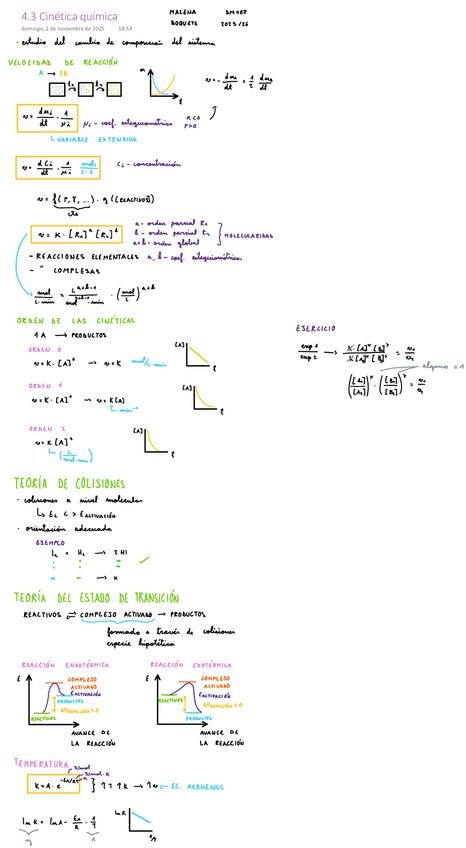 4.3 Cinética química
MALENA DM107
BOQUETE 2025/26
domingo, 2 de noviembre de 2025 18:54
- estudio del cambio de composición del sistema
VELOCIDAD DE REACCIÓN
A → 2B
m
t
v = dn_i/dt · 1/μ_i
μ_i - coef. estequiométrico R<0 P>0
↳ VARIABLE EXTENSIVA
v = dC_i/dt · 1/μ_i
C_i - concentración
v = f(P, T, ...) · g([REACTIVOS])
cte
v = K · [R₁]^a [R₂]^b
a - orden parcial R₁
b - orden parcial R₂
a+b - orden global
MOLECULARIDAD
- REACCIONES ELEMENTALES a, b - coef. estequiométrico
- " COMPLEJAS
ORDEN DE LAS CINÉTICAS
1A → PRODUCTOS
ORDEN 0
v = K · [A]⁰ → v = K
[A]
t
ORDEN 1
v = K · [A]¹ → v = K[A]
[A]
t
ORDEN 2
v = K[A]²
[A]
t
EJERCICIO
exp 1
exp 2
alguno = 1
TEORÍA DE COLISIONES
- colisiones a nivel molecular
- orientación adecuada
EJEMPLO
I₂ + H₂ → 2 HI
→ X
TEORÍA DEL ESTADO DE TRANSICIÓN
REACTIVOS ⇌ COMPLEJO ACTIVADO → PRODUCTOS
formado a través de colisiones
especie hipotética
REACCIÓN ENDOTÉRMICA
E
COMPLEJO
ACTIVADO
E ACTIVACIÓN
PRODUCTOS
REACTIVOS
ΔH REACCIÓN > 0
AVANCE DE
LA REACCIÓN
REACCIÓN EXOTÉRMICA
E
COMPLEJO
ACTIVADO
E ACTIVACIÓN
REACTIVOS
ΔH REACCIÓN < 0
PRODUCTOS
AVANCE DE
LA REACCIÓN
TEMPERATURA
K = A · e^(-Ea/RT)
↑T ↑K → ↑v
EC. ARRHENIUS
ln K = ln A - Ea/R · 1/T
y
x
ln K